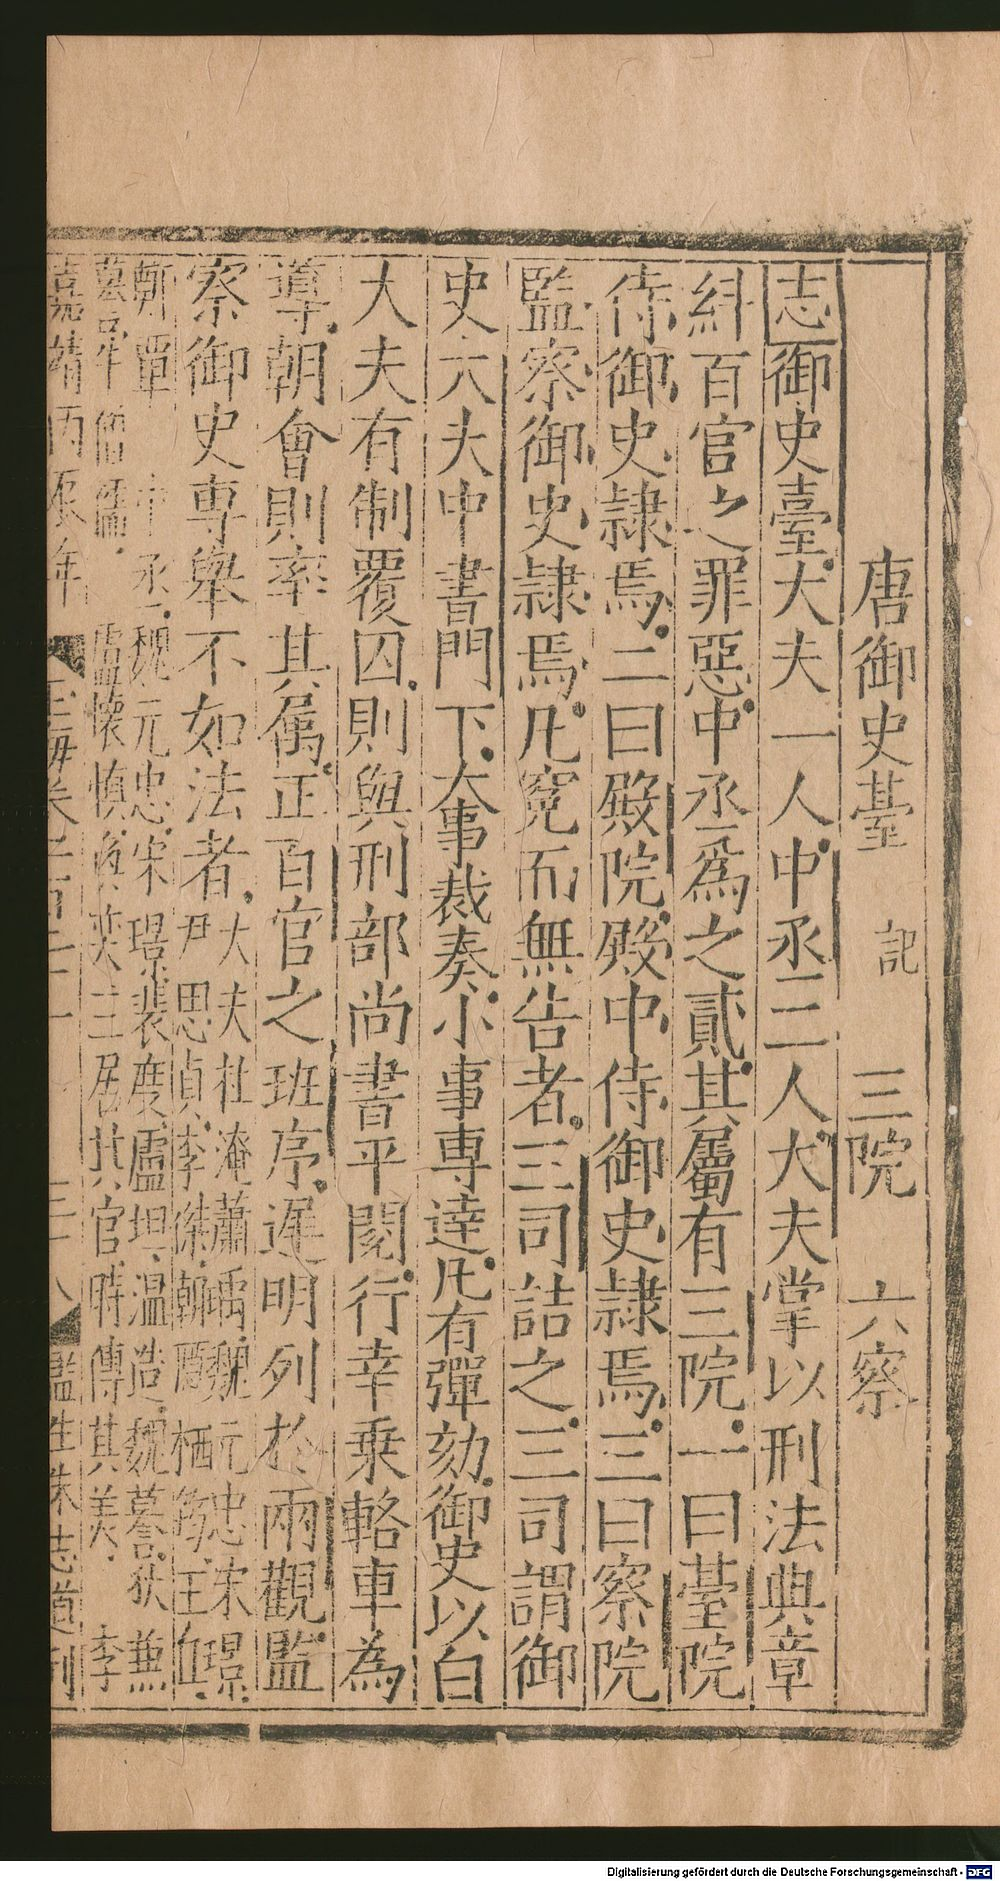 唐御史臺 記 三院 六察
志御史臺大夫一人中丞三人大夫掌以刑法典章
糾百官之罪惡中丞爲之貳其屬有三院一曰臺院
侍御史隷焉二曰殿院殿中侍御史隷焉三曰察院
監察御史隷焉凡寃而無告者三司詰之三司謂御
史大夫中書門下大事裁奏小事專達凡有彈劾御史以白
大夫有制覆囚則與刑部尚書平閱行幸乗輅車為
導朝會則率其属正百官之班序遲明列於兩觀監
察御史專舉不如法者
大夫杜淹蕭瑀魏元忠宋璟
尹思貞李傑
栖筠王
中丞魏元忠宋璟裴度盧坦温造魏謩狄兼
謩牛僧孺盧懷慎奕三居其官時傳其美李
嘉靖丙辰年
監生朱志道刊
Digitalisierung gefördert durch die Deutsche Forschungsgemeinschaft - DFG